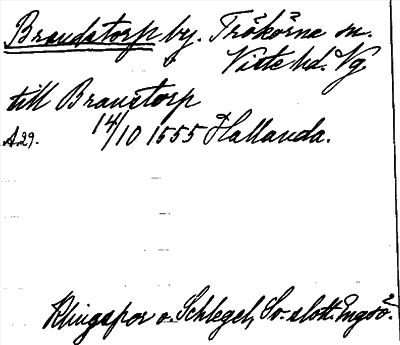 Brandstorp by. Trökörne sn.
Viste hd. Vg
till Branstorp
14/10 1555 Hallanda.
A.29.
Klingspor o. Schlegel, Sv. slott. Engsö.